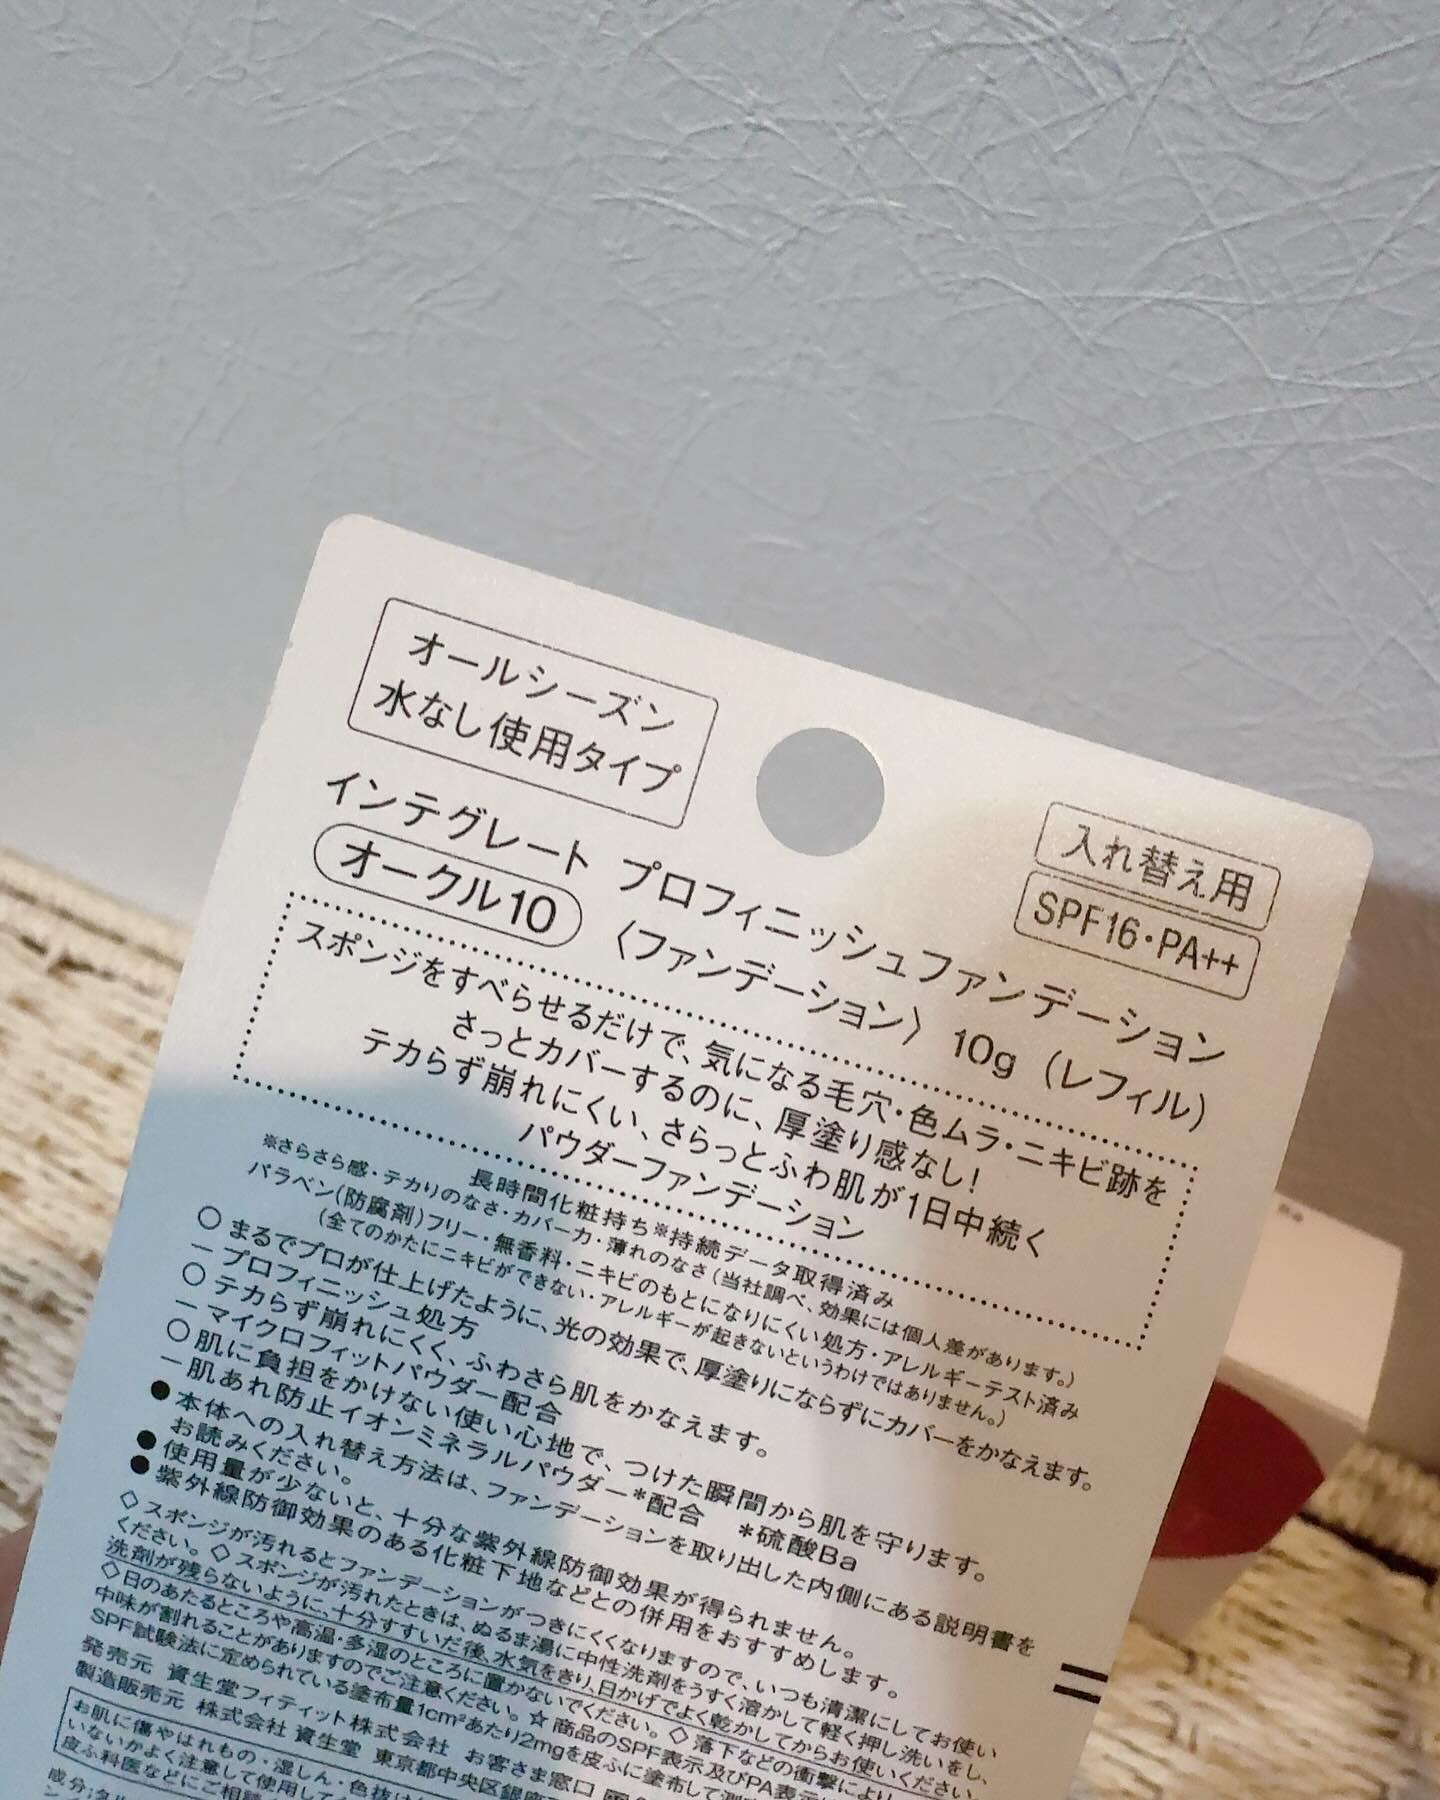 オールシーズン
水なし使用タイプ
入れ替え用
SPF16・PA++
インテグレート プロフィニッシュファンデーション
オークル10
〈ファンデーション〉 10g (レフィル)
スポンジをすべらせるだけで、気になる毛穴・色ムラ・ニキビ跡を
さっとカバーするのに、厚塗り感なし!
テカらず崩れにくい、さらっとふわ肌が1日中続く
パウダーファンデーション
長時間化粧持ち※持続データ取得済み
※さらさら感・テカリのなさ・カバー力・薄れのなさ(当社調べ、効果には個人差があります。)
パラベン(防腐剤)フリー・無香料・ニキビのもとになりにくい処方・アレルギーテスト済み
(全てのかたにニキビができない・アレルギーが起きないというわけではありません。)
○ まるでプロが仕上げたように、光の効果で、厚塗りにならずにカバーをかなえます。
ー プロフィニッシュ処方
○ テカらず崩れにくく、ふわさら肌をかなえます。
ー マイクロフィットパウダー配合
○ 肌に負担をかけない使い心地で、つけた瞬間から肌を守ります。
ー 肌あれ防止イオンミネラルパウダー*配合 *硫酸Ba
● 本体への入れ替え方法は、ファンデーションを取り出した内側にある説明書を
お読みください。
● 使用量が少ないと、十分な紫外線防御効果が得られません。
● 紫外線防御効果のある化粧下地などとの併用をおすすめします。
◇スポンジが汚れるとファンデーションがつきにくくなりますので、いつも清潔にしてお使い
ください。◇スポンジが汚れたときは、ぬるま湯に中性洗剤をうすく溶かして軽く押し洗いをし、
洗剤が残らないように、十分すすいだ後、水気をきり、日かげでよく乾かしてからお使いください。
◇日のあたるところや高温・多湿のところに置かないでください。◇落下などの衝撃により
中味が割れることがありますのでご注意ください。☆商品のSPF表示及びPA表示
SPF試験法に定められている塗布量1cm²あたり2mgを皮ふに塗布して測
発売元 資生堂フィティット株式会社 お客さま窓口
製造販売元 株式会社 資生堂 東京都中央区銀座
お肌に傷やはれもの・湿しん・色抜け
いないかよく注意して使用して
皮ふ科医などにご相談
成分:タル